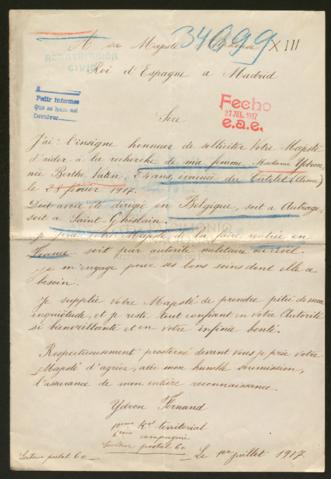 A Sa Majesté
34699 XIII
REPATRIACION
CIVIL
Roi d'Espagne a Madrid
Pedir informes
Fecho
27 JUL. 1917
e.a.e.
Sire
J'ai l'insigne honneur de solliciter Votre Majesté
d'aider à la recherche de ma femme, Madame Ydron,
née Berthe 24 ans, du
le 24 février 1917.
Doit avoir été dirigé en Belgique, soit à
soit à Saint Ghislain.
Je prie Votre Majesté de la faire rentrer en
France soit par autorité militaire ou civil.
je m'engage pour ses bons soins dont elle a
besoin.
Je supplie Votre Majesté de prendre pitié de mon
inquiétude, et je reste tout confiant en votre Autorité
si bienveillante et en votre infinie bonté.
Respectueusement prosterné devant vous je prie Votre
Majesté d'agréer, avec mon humble soumission,
l'assurance de mon entière reconnaissance.
Ydron Fernand
territorial
compagnie
Secteur postal 60
Secteur postal 60 Le 1er juillet 1917.